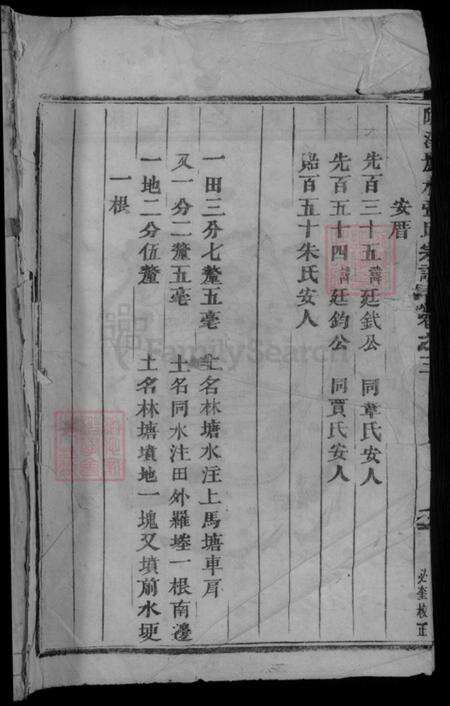 安厝
先百三十五諱廷鉽公　同章氏安人
先百五十四諱廷鈞公　同賈氏安人
百五十朱氏安人
一田三分七釐五毫　土名林塘水注上馬塘車戽
又一分二釐五毫　土名同水注田外羅墘一根南邊
一地二分伍釐　土名林塘墳地一塊又墳前水埂
一根
氏宗譜卷之三
必奎校正
FamilySearch